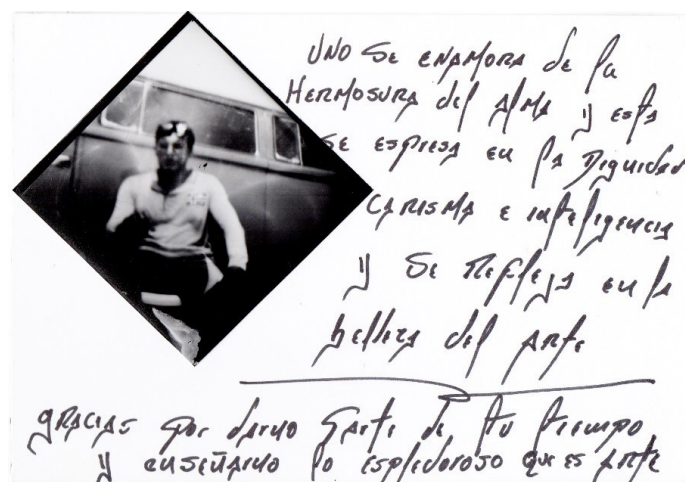 UNO SE ENAMORA de la
HERMOSURA del AlMA y esta
SE espresa en la Dignidad
CARISMA e inteligencia
y Se Refleja en la
belleza del Arte
gRACIAS por darno parte de tu tiempo
y enseñarno lo espledoroso que es Arte